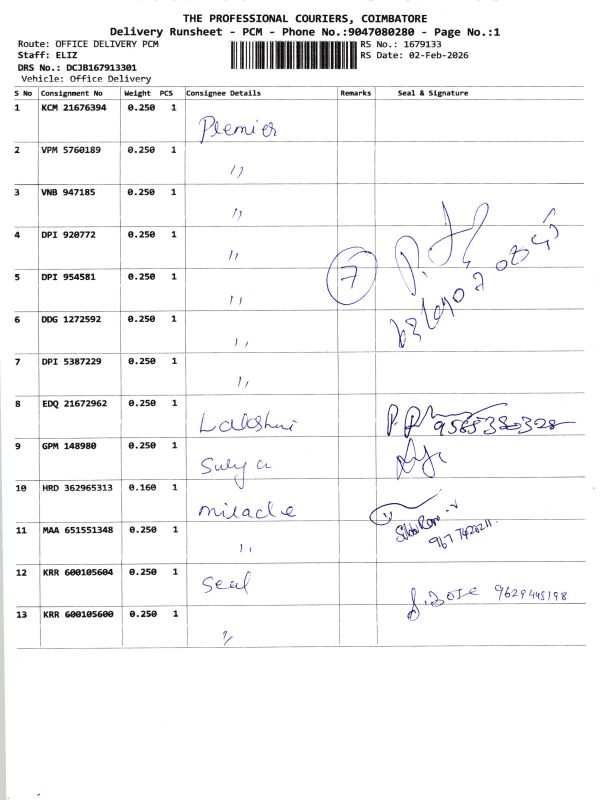 THE PROFESSIONAL COURIERS, COIMBATORE
Delivery Runsheet - PCM - Phone No.:9047080280 - Page No.:1
Route: OFFICE DELIVERY PCM
Staff: ELIZ
DRS No.: DCJB167913301
Vehicle: Office Delivery
RS No.: 1679133
RS Date: 02-Feb-2026
S No Consignment No Weight PCS Consignee Details Remarks Seal & Signature
1 KCM 21676394 0.250 1 Premier
2 VPM 5760189 0.250 1 ,,
3 VNB 947185 0.250 1 ,,
4 DPI 920772 0.250 1 ,,
5 DPI 954581 0.250 1 ,, 7
6 DDG 1272592 0.250 1 ,,
7 DPI 5387229 0.250 1 ,,
8 EDQ 21672962 0.250 1 Lakshmi 9585330328
9 GPM 148980 0.250 1 Surya
10 HRD 362965313 0.160 1 miracle
11 MAA 651551348 0.250 1 ,,
12 KRR 600105604 0.250 1 Seal 9629445198
13 KRR 600105600 0.250 1 ,,